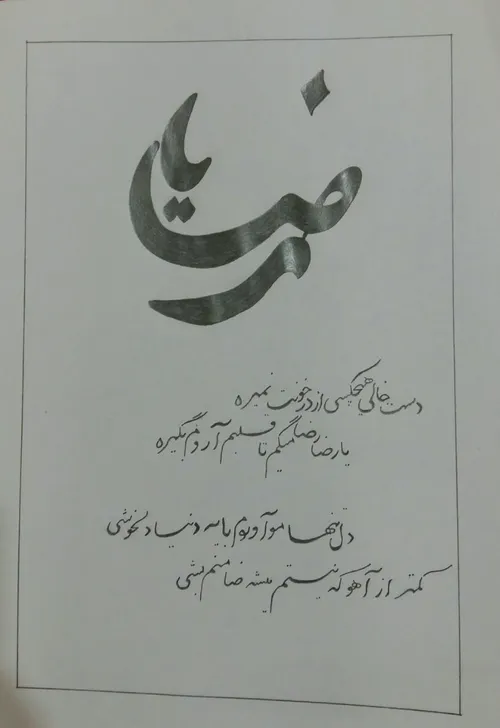 یا رضا
دست خالی هیچکسی از در خونت نمیره
یا رضا رضا میگم تا قلبم آروم بگیره
دل تنهامو آوردم با یه دنیا دلخوشی
کمتر از آهو که نیستم میشه ضامنم بشی